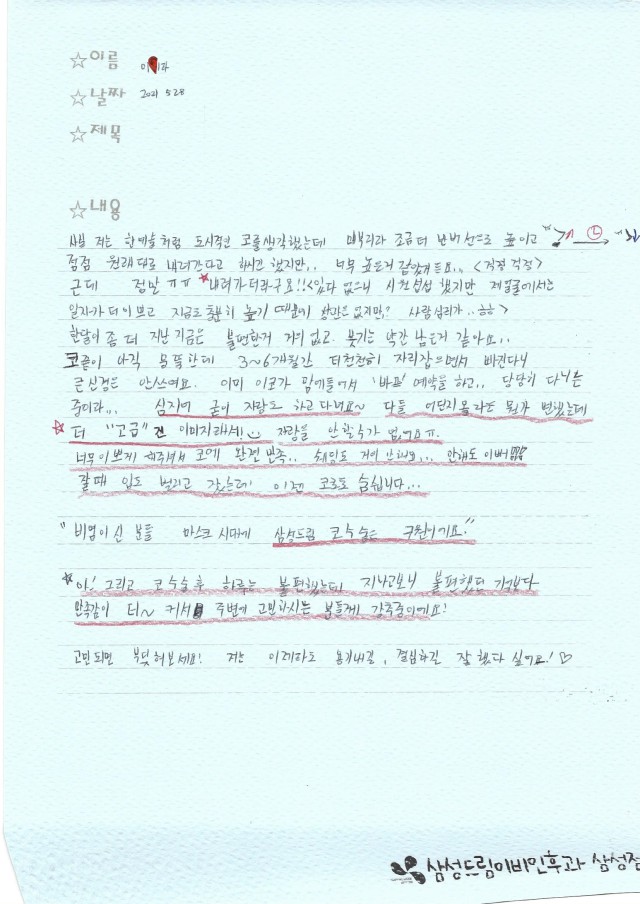 ☆이름 이 과
☆날짜 2021 5.28
☆제목
☆내용
사실 저는 한예슬처럼 도시적인 코를 생각했는데 조금 더 높이고
점점 원래대로 내려간다고 하시긴 했지만.. 너무 높은거 같았거든요.. <걱정걱정>
근데 정말 ㅠㅠ ★내려가더라구요!! <있다 없으니 시원섭섭 했지만 제 얼굴에서는
일자가 더 이쁘고 지금도 충분히 높기 때문에 상관은 없지만? 사람심리가..ㅎㅎ>
한달이 좀 더 지난 지금은 불편한거 거의 없고. 붓기는 약간 남은거 같아요..
코끝이 아직 뭉뚝한데 3~6개월간 더 천천히 자리잡으면서 빠진다니
큰 신경은 안쓰여요. 이미 이코가 맘에들어서 '바프' 예약을 하고.. 당당히 다니는
중이라... 심지어 굳이 자랑도 하고 다녀요~ 다들 어딘지 몰라도 뭔가 변했는데
☆ 더 "고급"진 이미지라해서! 자랑을 안할수가 없어요ㅠ.
너무이쁘게 해주셔서 코에 완전 만족.. 쉐딩도 거의 안해요... 안해도 이뻐
잘때 입도 벌리고 잤는데! 이젠 코로도 숨쉽니다...
"비염이신 분들 마스크 시대에 삼성드림 코수술은 구원이기요."
☆아! 그리고 코수술후 하루는 불편했는데 지나고보니 불편했던 기억보다
만족감이 더~ 커서 주변에 고민하시는 분들께 강추중이에요!
고민되면 부딪혀보세요! 저는 이제라도 용기내길, 결심하길 잘했다 싶어요! ♡
삼성드림이비인후과 삼성점